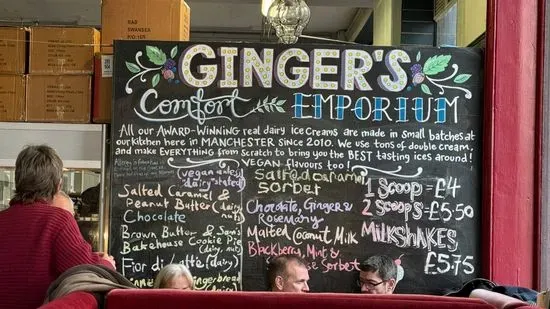 GINGER'S
Comfort EMPORIUM
All our AWARD-WINNING real dairy Ice Creams are made in Small batches at
our kitchen here in MANCHESTER since 2010. We use tons of double cream,
and make EVERYTHING from Scratch to bring you the BEST tasting ices around!
VEGAN flavours too!
(vegan unless
dairy stated)
Salted Caramel &
Peanut Butter (dairy, nut)
Chocolate
Brown Butter & Sam's
Bakehouse Cookie Pie
(dairy, nut)
Fior di latte (dairy)
Gingerbread
Salted caramel
sorbet
Chocolate, Ginger &
Rosemary
Malted Coconut Milk
Blackberry, Mint &
Sorbet
1 Scoop = £4
2 Scoops = £5·50
MilkSHAKES
£5.75